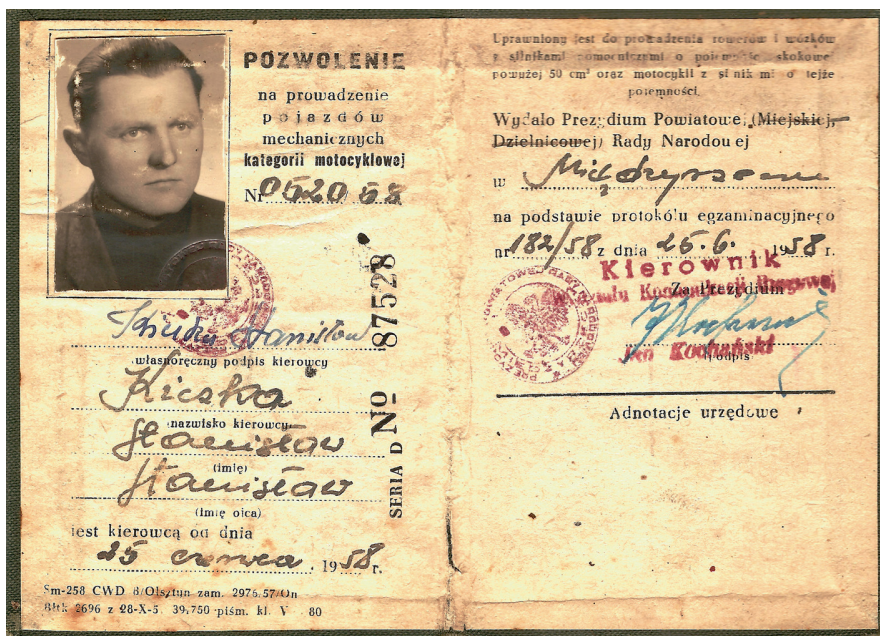 POZWOLENIE
na prowadzenie
pojazdów
mechanicznych
kategorii motocyklowej
Nr 0520/58
Kiczka Stanisław
własnoręczny podpis kierowcy
Kiczka
nazwisko kierowcy
Stanisław
(imię)
Stanisław
(imię ojca)
jest kierowcą od dnia
25 czerwca 1958 r.
SERIA D No 87528
Sm-258 CWD 8/Olsztyn zam. 2976/57/On
Bltk 2696 z 28-X-5 39,750 piśm. kl. V 80
Uprawniony jest do prowadzenia rowerów i wózków
z silnikami pomocniczymi o pojemności skokowej
powyżej 50 cm³ oraz motocykli z silnikami o tejże
pojemności.
Wydało Prezydium Powiatowej, (Miejskiej,
Dzielnicowej) Rady Narodowej
w
na podstawie protokółu egzaminacyjnego
nr 182/58 z dnia 25.6. 1958 r.
Kierownik
Wydziału Komunikacji Drogowej
Za Prezydium
Jan Kochański
Podpis
Adnotacje urzędowe